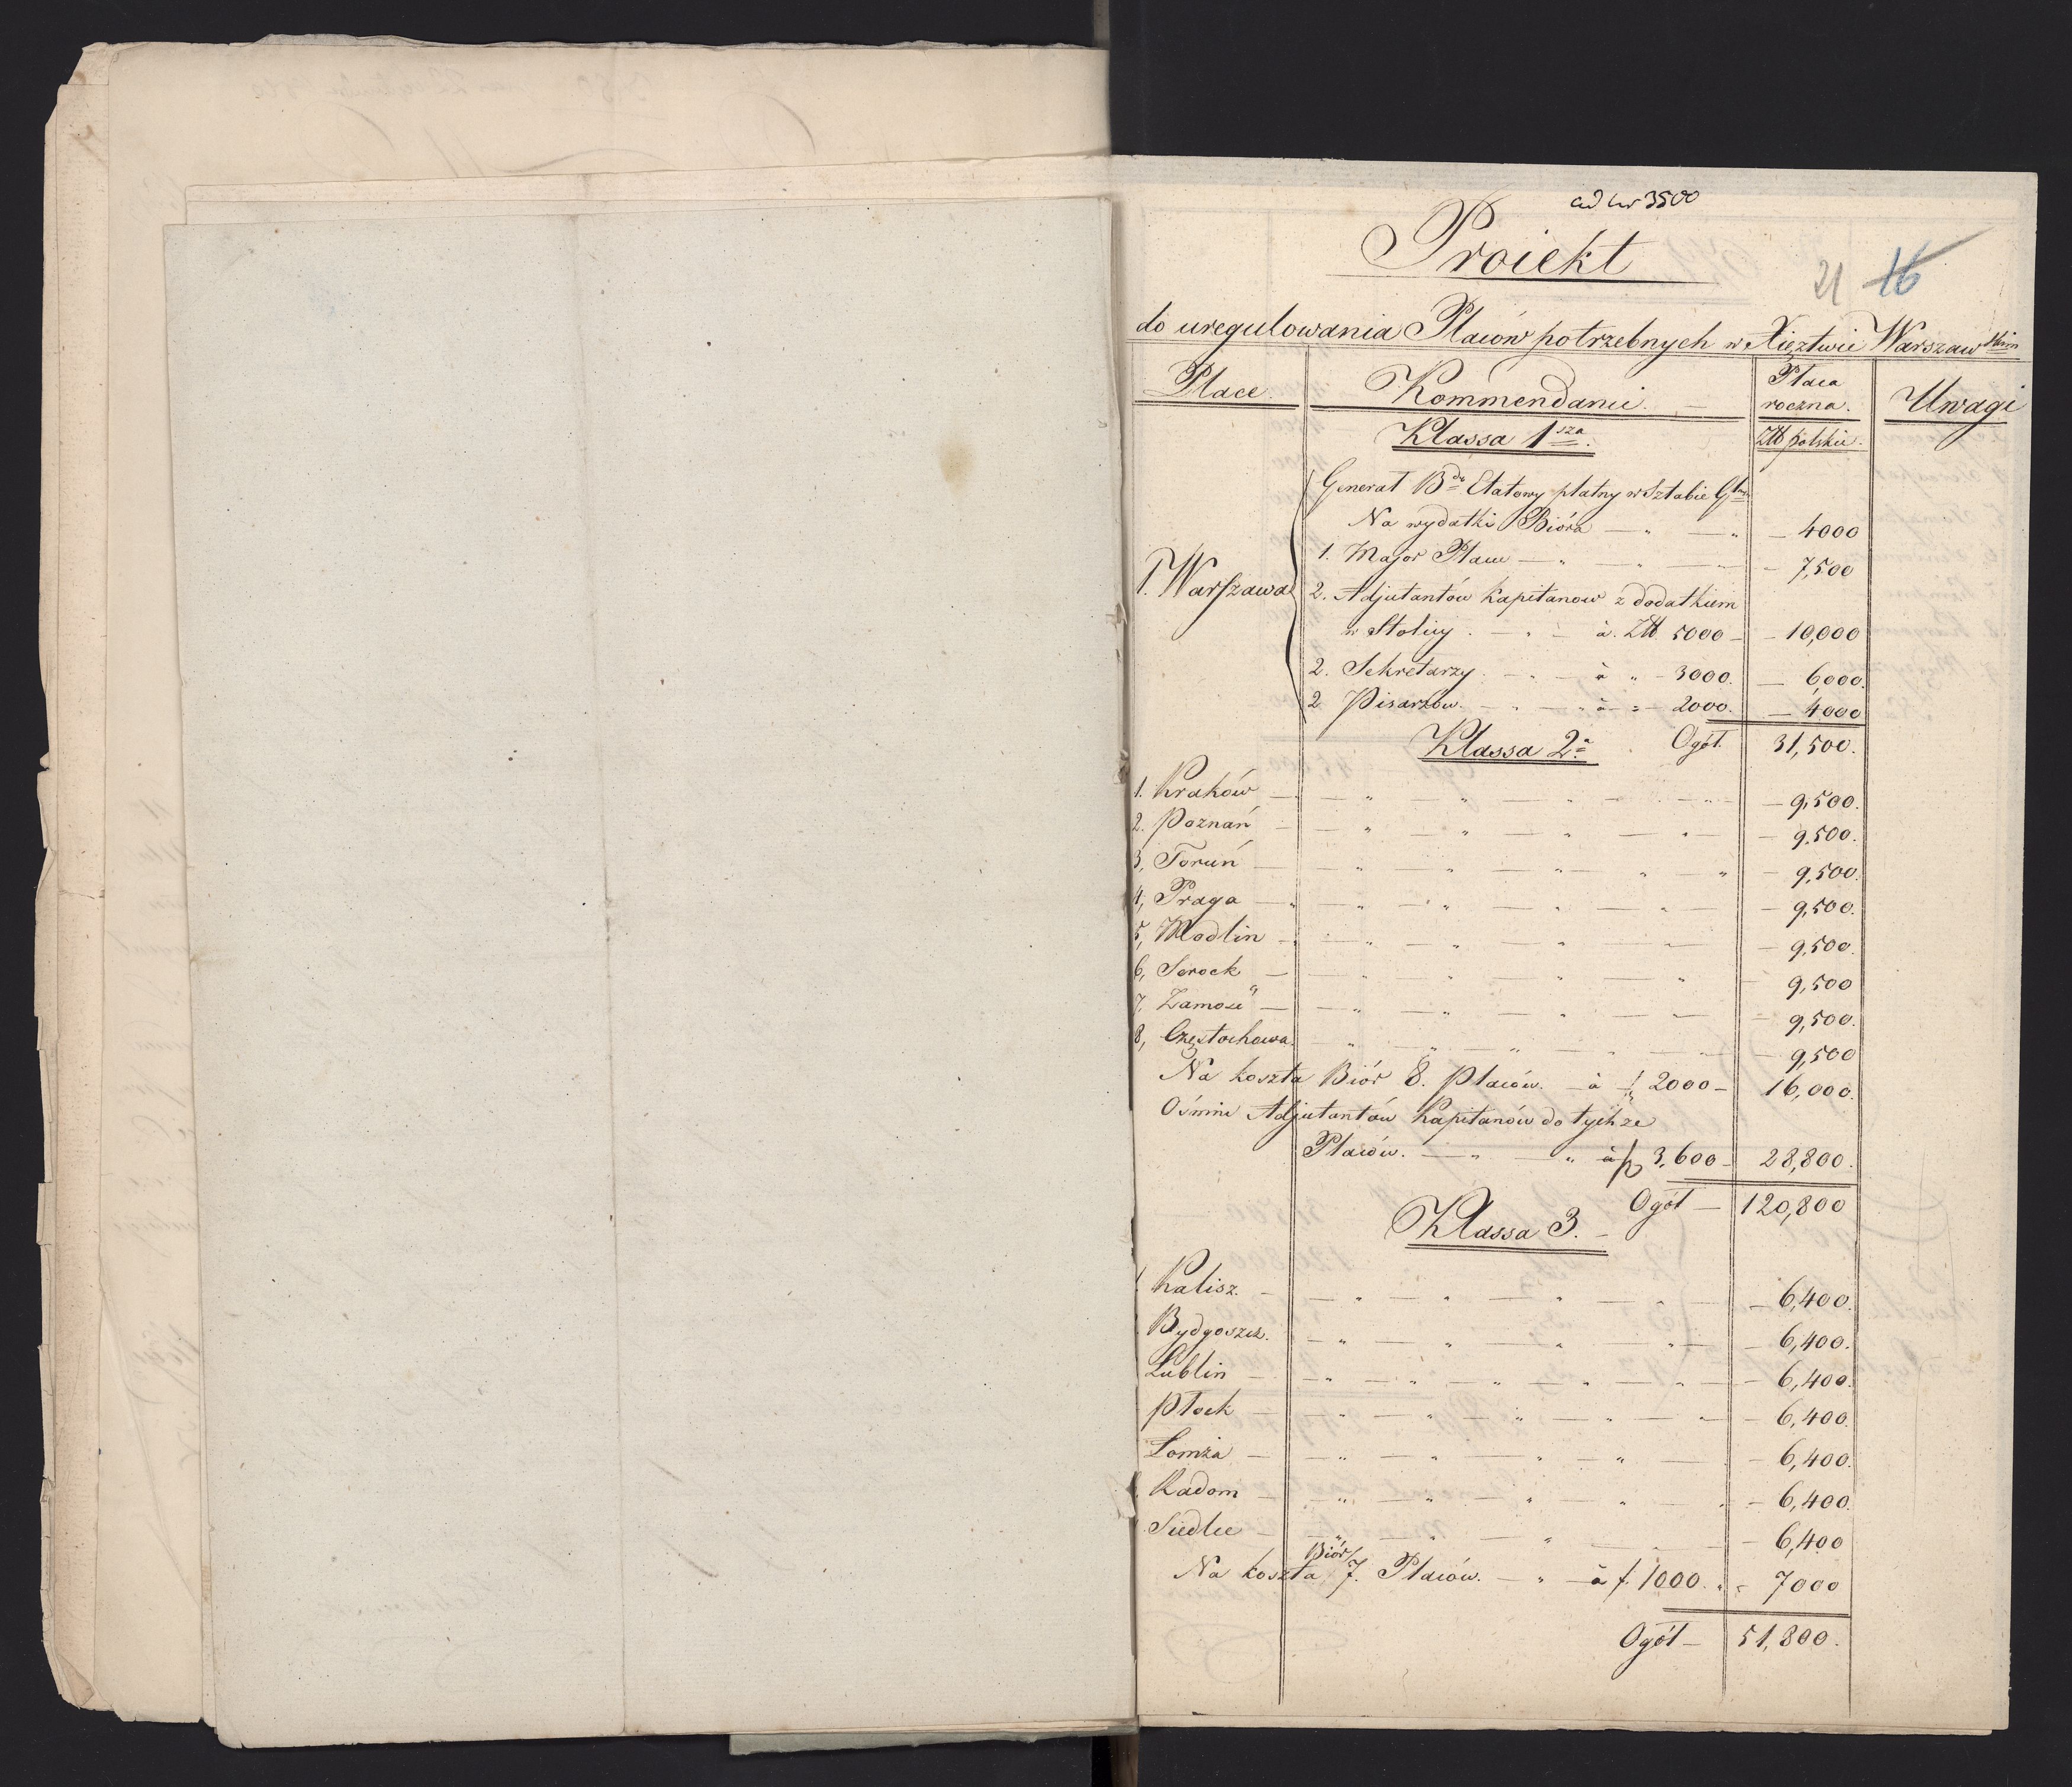 ad nr 3500
Proiekt
21 16
do uregulowania Placów potrzebnych w Xięztwie Warszawskim
Place. Kommendanci. Płaca roczna. Uwagi
Klassa 1sza. Złł polskie.
Generał Bdy Etatowy płatny w Sztabie Głm
Na wydatki Bióra — " — " — 4000
1. Major Placu — " — " — 7,500
1. Warszawa 2. Adjutantów Kapitanow z dodatkiem
w Stolicy. — " — à. Złł 5000 — 10,000
2. Sekretarzy. — " — à " 3000. — 6,000.
2 Pisarzów. — " — " à — " 2000. — 4000
Klassa 2a. Ogół. 31,500.
1. Kraków — " — " — " — 9,500.
2. Poznań — " — " — " — 9,500.
3, Toruń — " — " — " — 9,500.
4, Praga — " — " — " — 9,500.
5, Modlin — " — " — " — 9,500.
6, Serock — " — " — " — 9,500
7. Zamość — " — " — " — 9,500.
8, Częstochowa. " — " — " — 9,500
Na koszta Biór 8. Placów. — à f 2000 — 16,000.
Ośmiu Adjutantów Kapitanów do tychże
Placów. — " — " à f 3,600 — 28,800.
Ogół — 120,800
Klassa 3. —
Kalisz. — " — " — " — 6,400.
Bydgoszcz. — " — " — " — 6,400.
Lublin — " — " — " — 6,400.
Płock — " — " — " — 6,400.
Łomża — " — " — " — 6,400.
Radom — " — " — " — 6,400.
Siedlce — " — " — " — 6,400
Na koszta Biór 7. Placów. — " — à f. 1000. " — 7000
Ogół — 51,800.